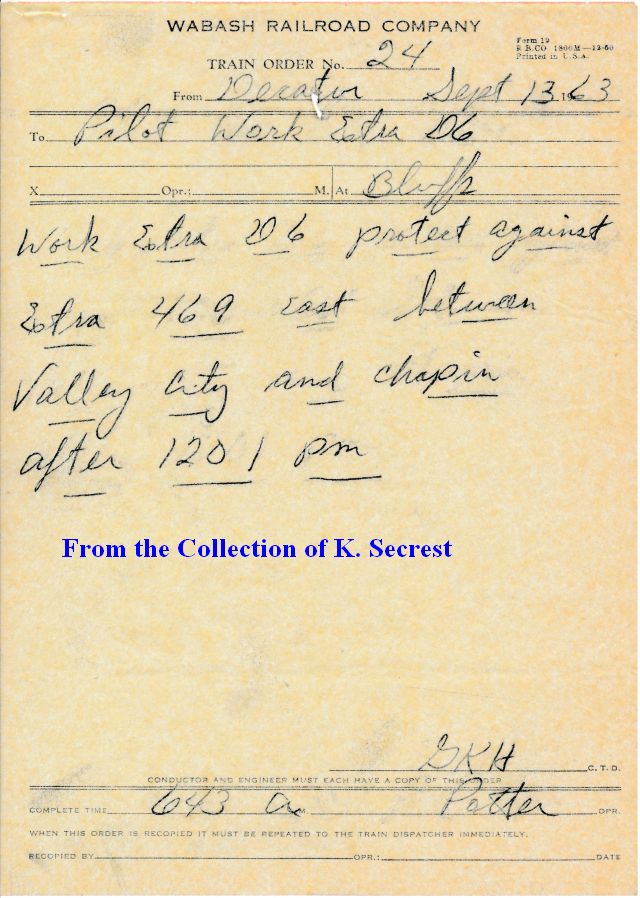 WABASH RAILROAD COMPANY
Form 19
R.B.CO 1800M—12-60
Printed in U.S.A.
TRAIN ORDER No. 24
From Decatur Sept 13 1963
To Pilot Work Extra D6
X Opr.: M. At Bluffs
Work Extra D6 protect against
Extra 469 east between
Valley City and chapin
after 1201 pm
From the Collection of K. Secrest
GKH C.T.D.
CONDUCTOR AND ENGINEER MUST EACH HAVE A COPY OF THIS ORDER
COMPLETE TIME 643 a M Potter OPR.
WHEN THIS ORDER IS RECOPIED IT MUST BE REPEATED TO THE TRAIN DISPATCHER IMMEDIATELY.
RECOPIED BY OPR.: DATE